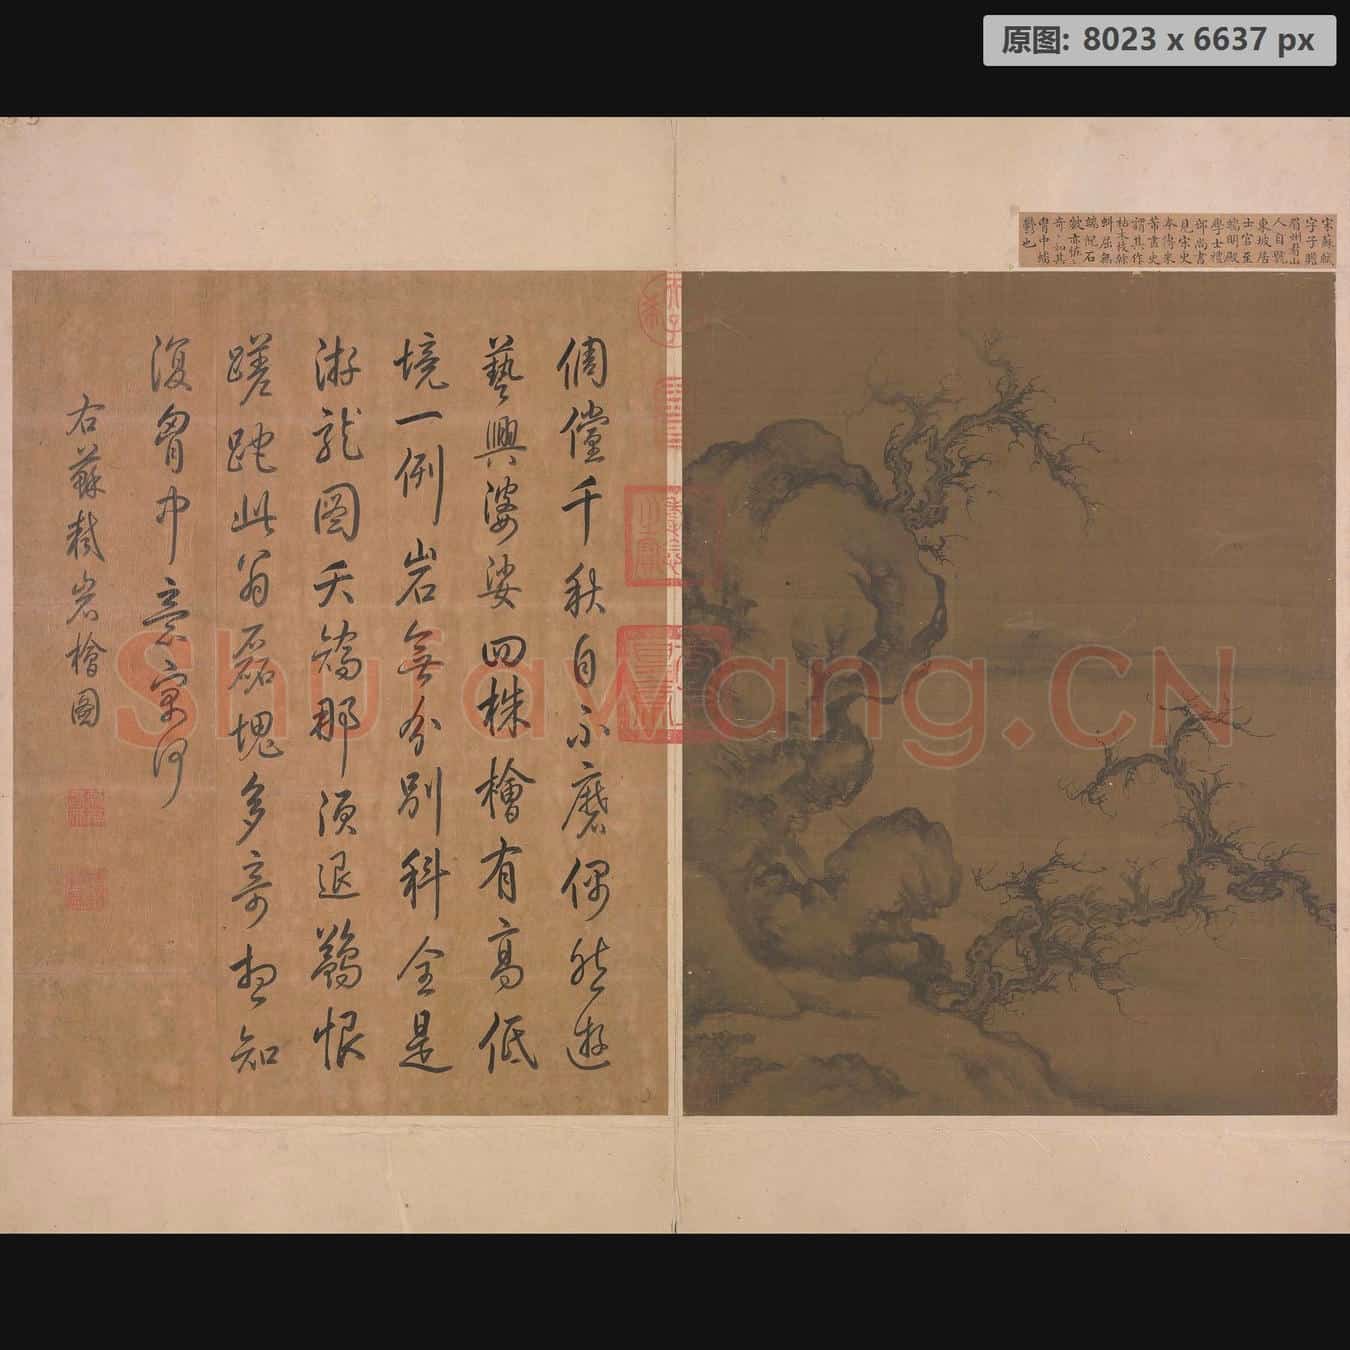 原图: 8023 x 6637 px
宋蘇軾
字子瞻
眉州眉山
人自號
東坡居
士官至
端明殿
學士禮
部尚書
見宋史
本傳米
芾畫史
謂其作
枯木枝榦
虯屈無
端倪石
皴亦怪〻
奇〻如其
胷中蟠
鬱也
倜儻千秋自不磨偶然遊
藝興婆娑四株檜有高低
境一例岩無分別科全是
游龍圖夭矯那須退鷁恨
蹉跎此翁磊塊多奇想知
復胷中意寓何
右蘇軾岩檜圖
Shufawang.CN